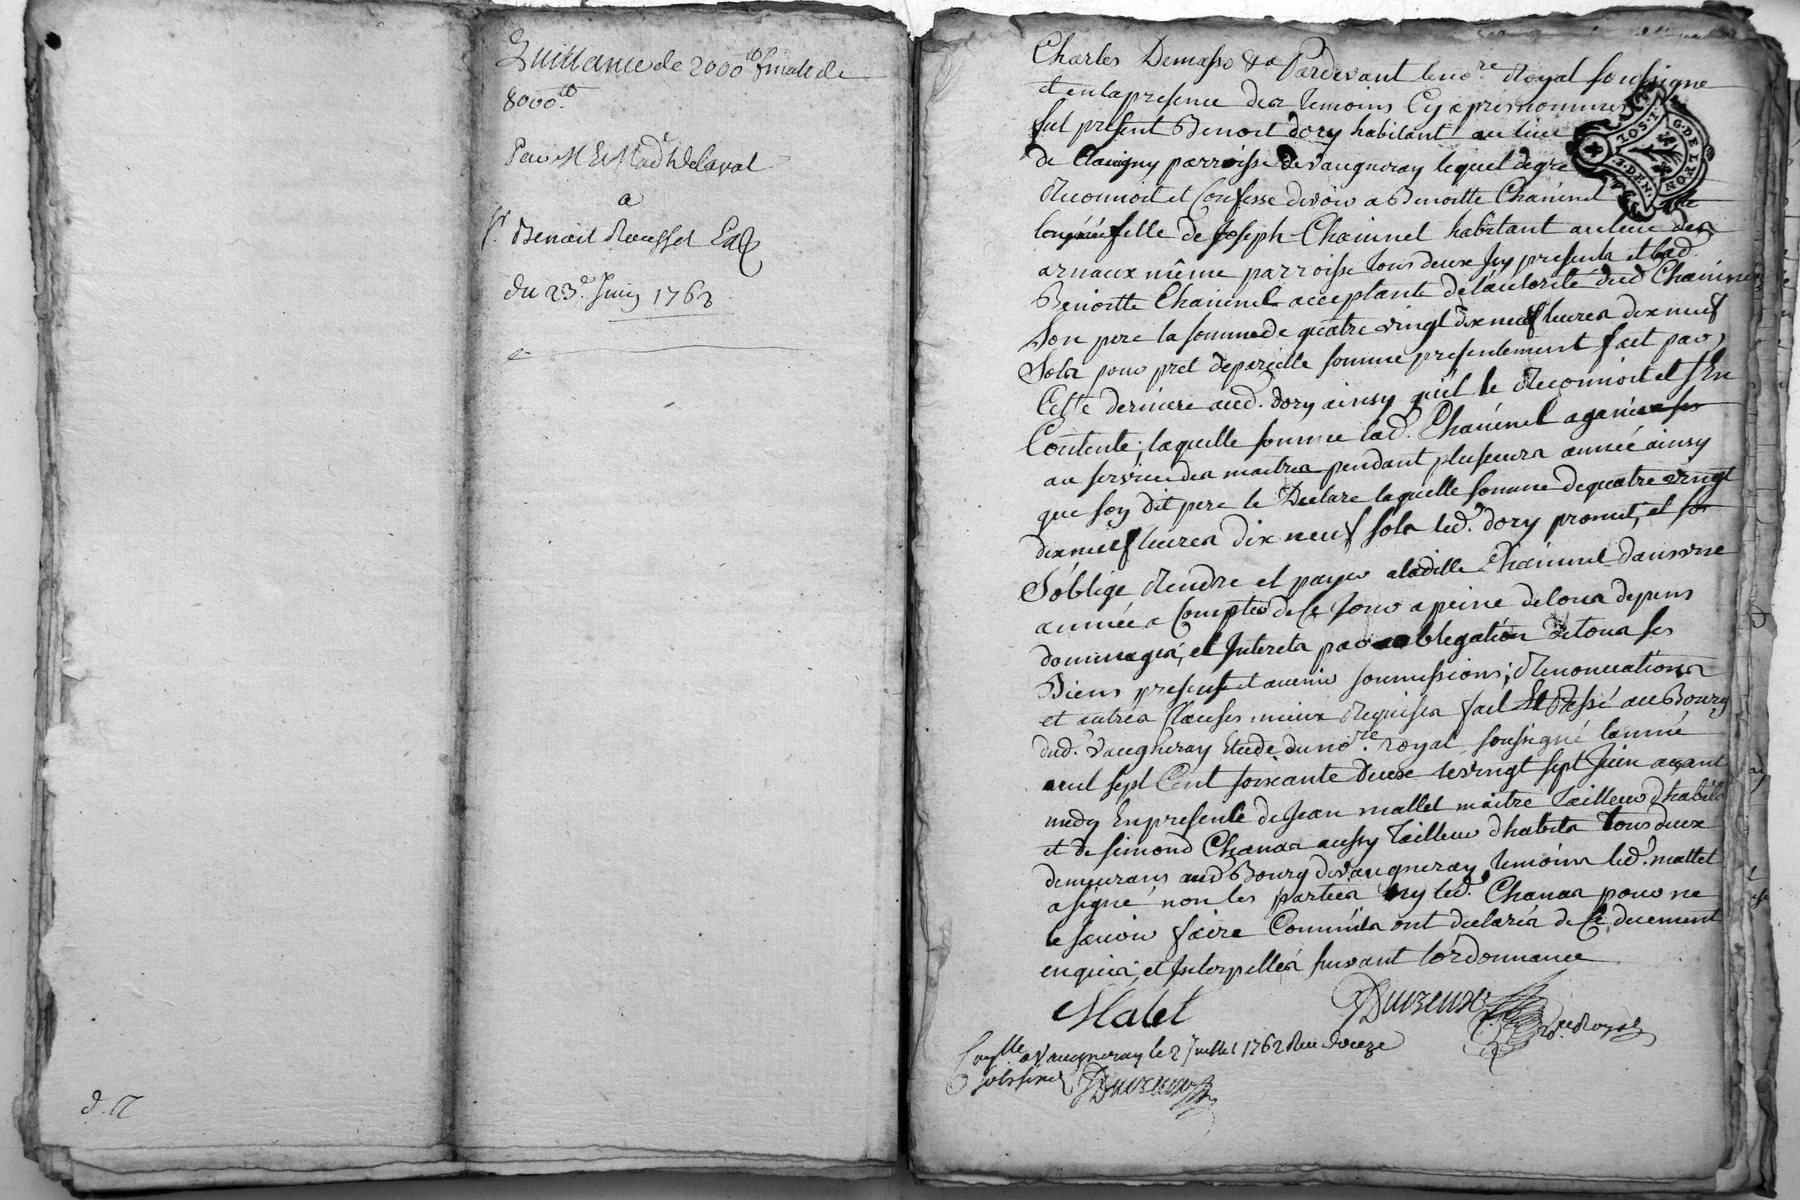 Quittance de 2000 lt finale de
8000 lt
Par M. Et Mad. Delaval
a
Sr. Benoit Rousset
du 23e Juin 1762
d. n
Charles Demasso &a Pardevant le no.re Royal soussigne
et en la presence des temoins Cy apres nommes
fut present Benoit Dory habitant au lieu
de Clavigny parroisse de Vaugneray lequel de gre
Reconnoit et Confesse devoir a Benoitte Chaninel
fille de Joseph Chaninel habitant au lieu des
arnaux même parroisse tous deux Icy presents et lad.
Benoitte Chaninel acceptante de l'autorité dud Chaninel
Son pere la somme de quatre vingt dix neuf livres dix neuf
Sols pour pret de pareille somme presentement fait par
Cette derniere aud. Dory ainsy qu'il le Reconnoit et s'En
Contente; laquelle somme lad. Chaninel a ganiée
au service des maitres pendant plusieurs année ainsy
que son dit pere le Declare laquelle somme de quatre vingt
dix neuf livres dix neuf sols led. Dory promet, et
S'oblige Rendre et payer a ladille Chaninel dans une
année a Compter de Ce Jour a peine de tous depens
dommages, et Interets par obligation de tous ses
Biens presents et avenir soumissions; Renonciations
et autres Clauses mieux Requises fait Et Passé au Bourg
dud. Vaugneray Etude du no.re royal soussigné l'année
mil sept Cent soixante deux le vingt sept Juin avant
midy En presence de Jean mallet maitre Tailleur d'habits
et de simond Chanas aussy Tailleur d'habits tous deux
demeurans aud Bourg de Vaugneray, temoins led. mallet
a signé non les parties ny led. Chanas pour ne
le savoir faire Comm'ils ont declarés de Ce duement
enquis, et Interpellés suivant l'ordonnance
Malet
Duvernay
no.re Royal
G. DE LYON
Con.lle a Vaugneray le 2 Juillet 1762 Reçu douze
sols six d. Duvernay